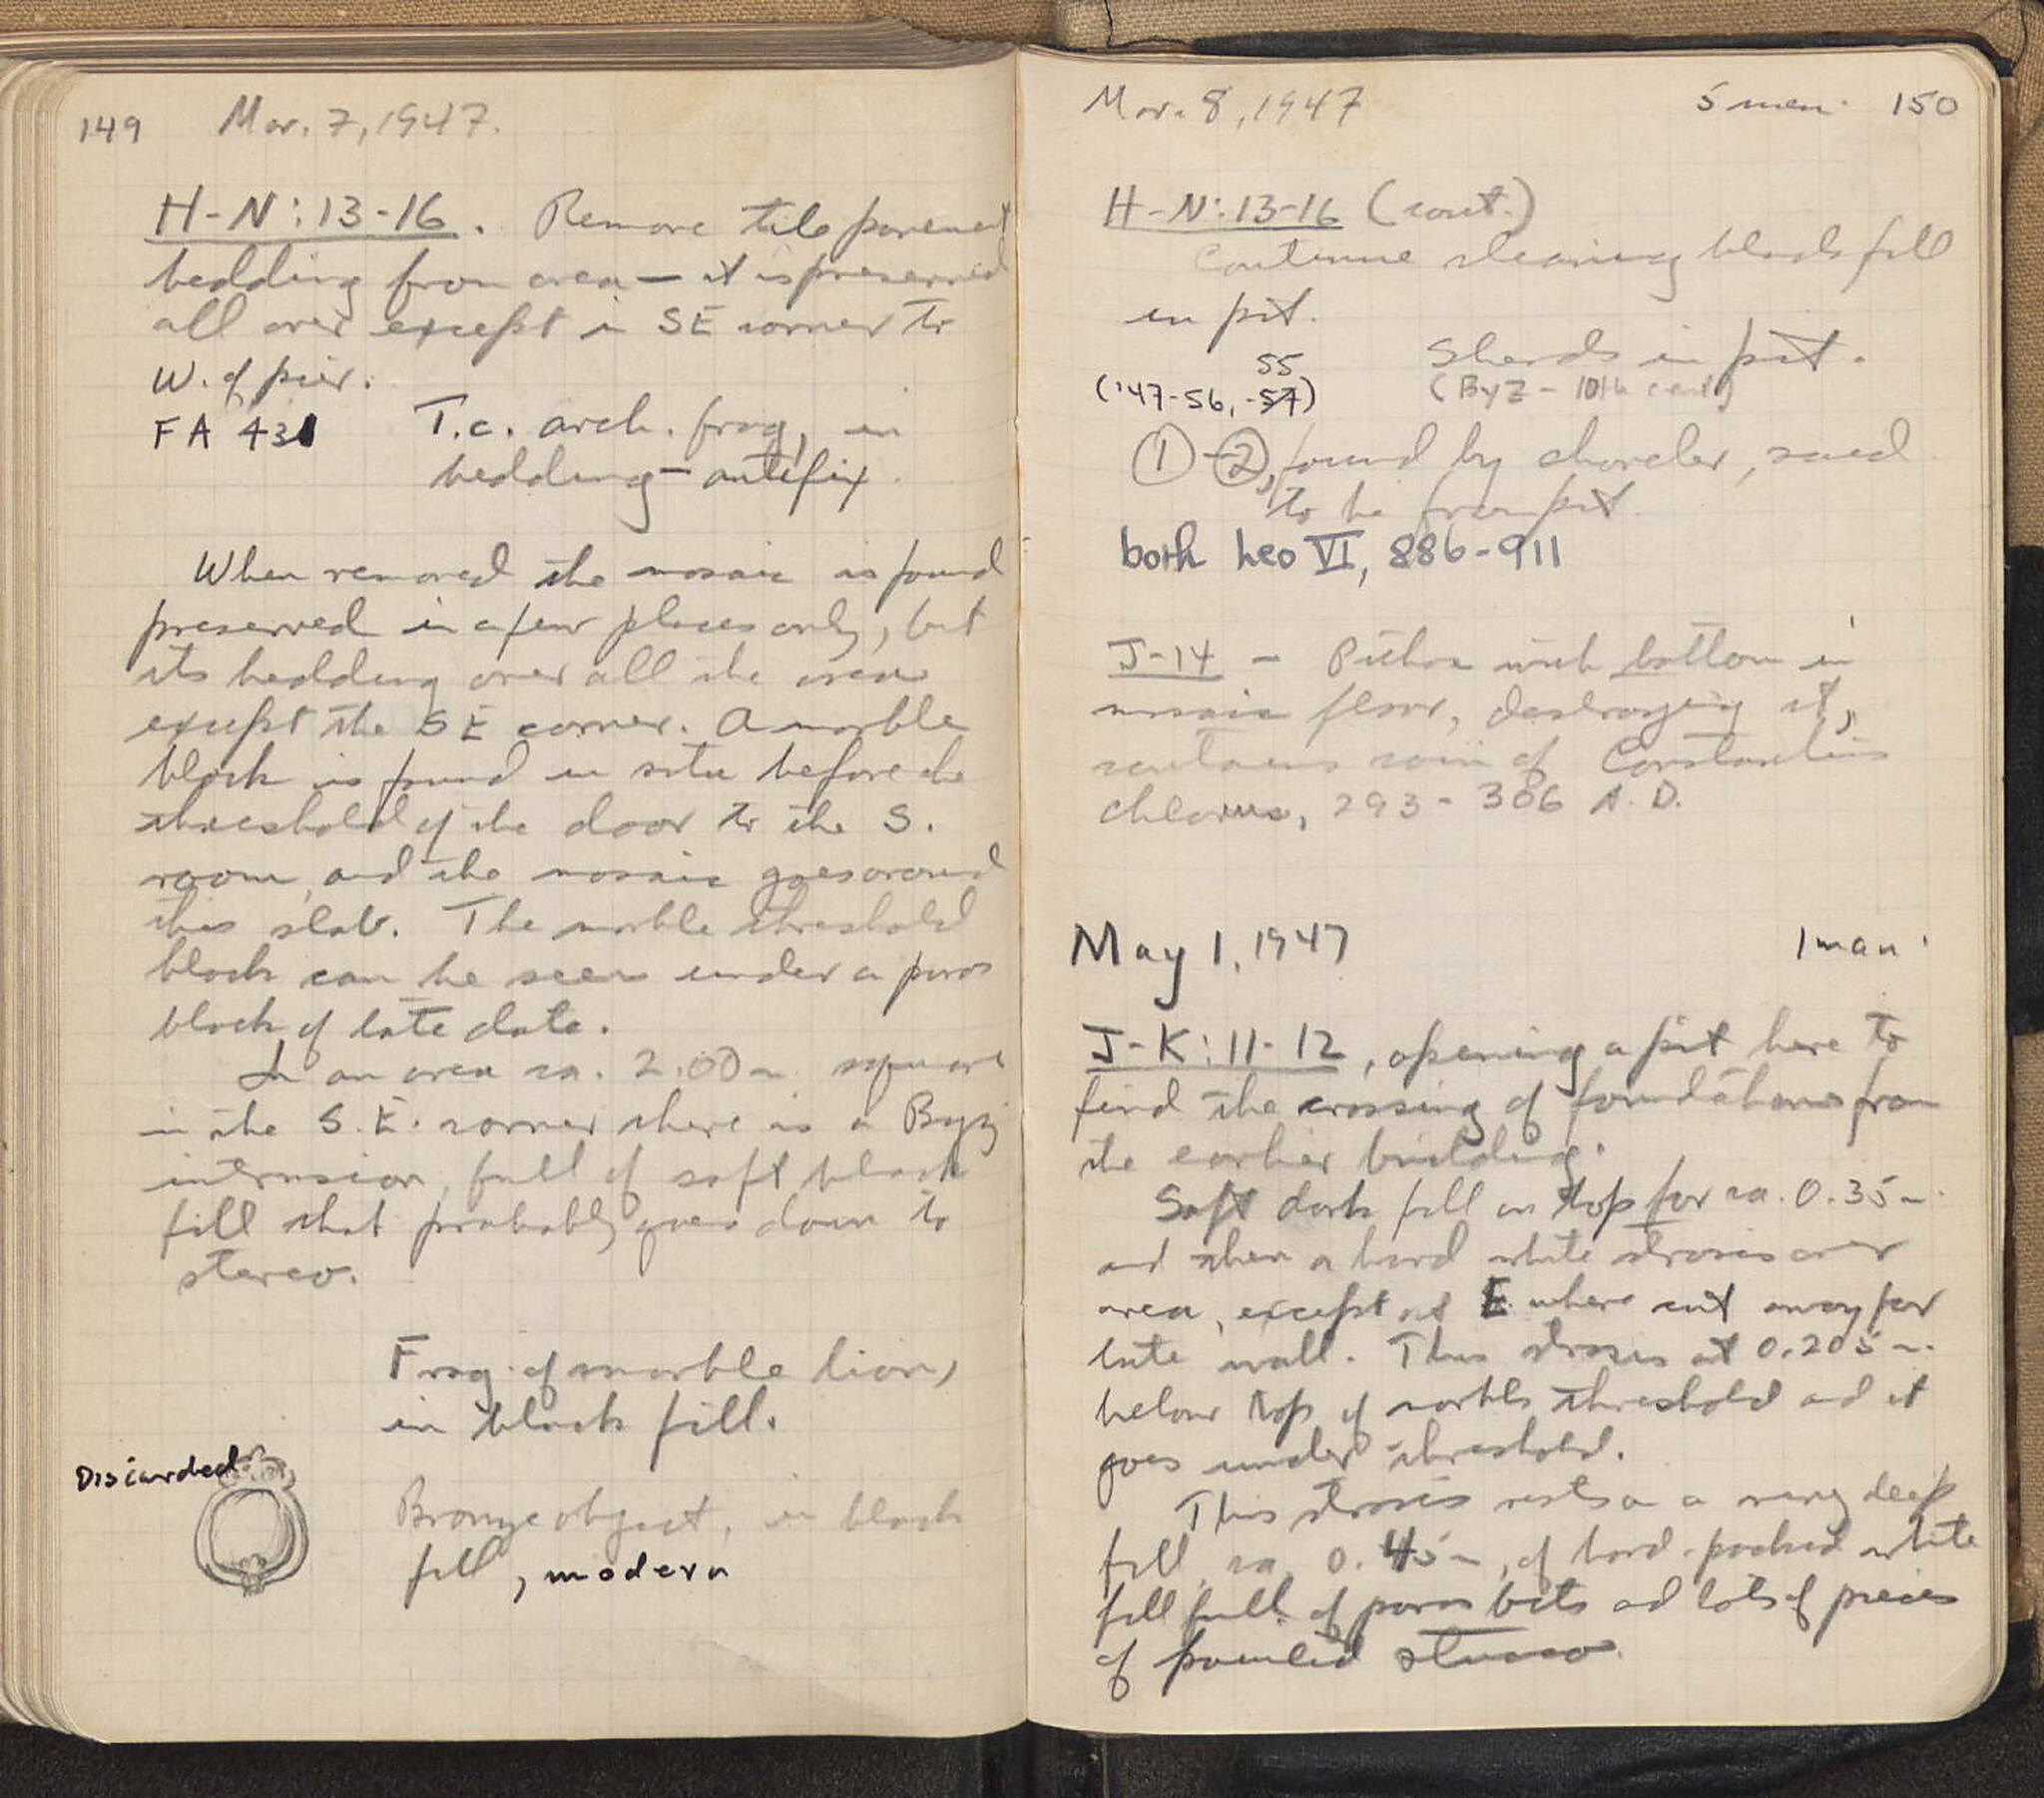 149 Mar. 7, 1947.
H-N:13-16. Remove tile pavement
bedding from area — it is preserved
all over except in SE corner to
W. of pier.
FA 431 T.c. arch. frag, in
bedding - antefix.
When removed the mosaic is found
preserved in a few places only, but
its bedding over all the area
except the SE corner. A marble
block is found in situ before the
threshold of the door to the S.
room, and the mosaic goes around
this slab. The marble threshold
block can be seen under a poros
block of late date.
In an area ca. 2.00 m. square
in the S.E. corner there is a Byz
intrusion, full of soft black
fill that probably goes down to
stereo.
Frag. of marble lion,
in black fill.
Discarded
Bronze object, in black
fill, modern
Mar. 8, 1947 5 men. 150
H-N:13-16 (cont.)
Continue cleaning black fill
in pit.
55 Sherds in pit.
('47-56, -57) (Byz - 10th cent)
① - ②, found by shoveler, said
to be from pit.
both Leo VI, 886-911
J-14 - Pithos with bottom in
mosaic floor, destroying it,
contains coin of Constantius
Chlorus, 293-306 A.D.
May 1, 1947 1 man.
J-K:11-12, opening a pit here to
find the crossing of foundations from
the earlier building.
Soft dark fill on top for ca. 0.35 m.
and then a hard white stroses over
area, except at E where cut away for
late wall. This stroses at 0.205 m.
below top of marble threshold and it
goes under threshold.
This stroses rests on a very deep
fill, ca. 0.45 m, of hard-packed white
fill full of poros bits and lots of pieces
of painted stucco.